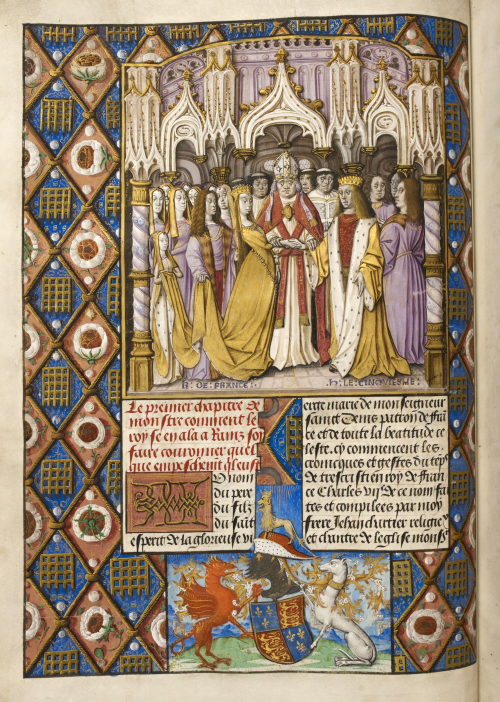 R · DE · FRANCE ·
H · LE · CINQVIESME ·
Le premier chapitre de
monstre comment le
roy se en ala a Rains soy
faire couronner quel
que empeschemt ql eust
U nom
du pere
du filz
du saint
esperit de la glorieuse vi
erge marie de monseigneur
saint Denis patron de fran
ce et de toute la beatitude ce
lestre cy commencent les
cronicques et gestes du teps
de trescrestien roy de fran
ce Charles vije de ce nom fai
tes et compilees par moy
frere Jehan chartier religie
et chantre de leglise mons